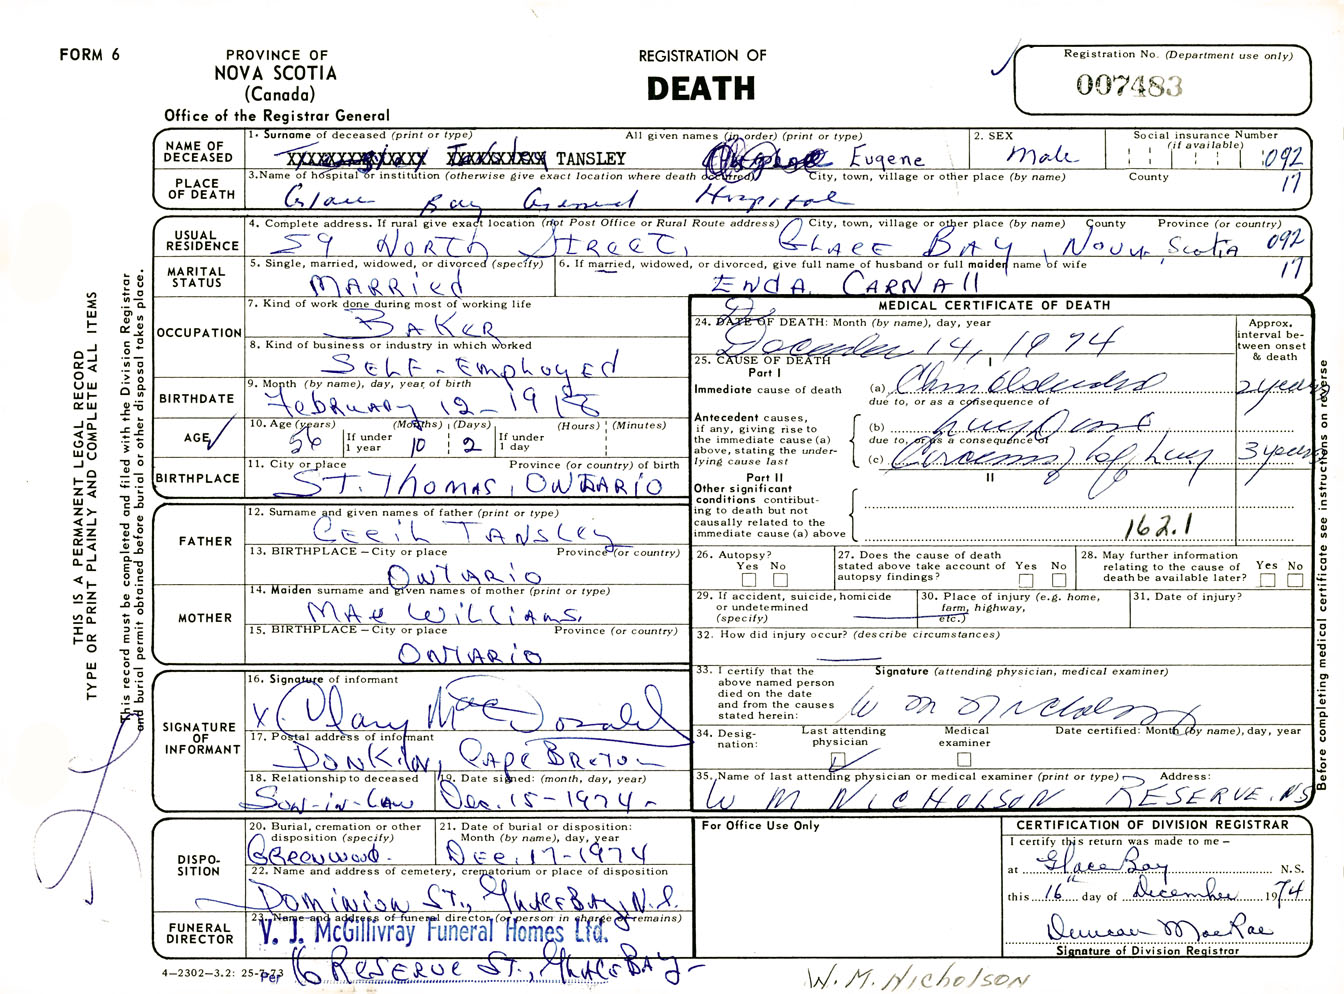 FORM 6
PROVINCE OF
NOVA SCOTIA
(Canada)
Office of the Registrar General
REGISTRATION OF
DEATH
Registration No. (Department use only)
007483
NAME OF DECEASED
1. Surname of deceased (print or type) All given names (in order) (print or type)
TANSLEY Eugene
2. SEX
Male
Social insurance Number (if available)
092
PLACE OF DEATH
3. Name of hospital or institution (otherwise give exact location where death occurred) City, town, village or other place (by name) County
Glace Bay General Hospital
17
USUAL RESIDENCE
4. Complete address. If rural give exact location (not Post Office or Rural Route address) City, town, village or other place (by name) County Province (or country)
59 NORTH STREET, GLACE BAY, NOVA Scotia 092
17
MARITAL STATUS
5. Single, married, widowed, or divorced (specify)
MARRIED
6. If married, widowed, or divorced, give full name of husband or full maiden name of wife
ENDA CARNALL
OCCUPATION
7. Kind of work done during most of working life
BAKER
8. Kind of business or industry in which worked
SELF-EMPLOYED
BIRTHDATE
9. Month (by name), day, year of birth
FEBRUARY 12-1918
AGE
10. Age (years) (Months) (Days) (Hours) (Minutes)
56 If under 1 year 10 2 If under 1 day
BIRTHPLACE
11. City or place Province (or country) of birth
ST. THOMAS, ONTARIO
FATHER
12. Surname and given names of father (print or type)
CECIL TANSLEY
13. BIRTHPLACE – City or place Province (or country)
ONTARIO
MOTHER
14. Maiden surname and given names of mother (print or type)
MAE WILLIAMS.
15. BIRTHPLACE – City or place Province (or country)
ONTARIO
SIGNATURE OF INFORMANT
16. Signature of informant
X MacDonald
17. Postal address of informant
DONKIN, CAPE BRETON
18. Relationship to deceased
SON-IN-LAW
19. Date signed: (month, day, year)
Dec. 15-1974-
DISPOSITION
20. Burial, cremation or other disposition (specify)
GREENWOOD-
21. Date of burial or disposition: Month (by name), day, year
DEC. 17-1974
22. Name and address of cemetery, crematorium or place of disposition
DOMINION ST., GLACE BAY, N.S.
FUNERAL DIRECTOR
23. Name and address of funeral director (or person in charge of remains)
V. J. McGillivray Funeral Homes Ltd.
Per 16 RESERVE ST., GLACE BAY-
4-2302-3.2: 25-7-73
MEDICAL CERTIFICATE OF DEATH
24. DATE OF DEATH: Month (by name), day, year
December 14, 1974
Approx. interval between onset & death
25. CAUSE OF DEATH
Part I
I
Immediate cause of death
(a) 2 years
due to, or as a consequence of
Antecedent causes, if any, giving rise to the immediate cause (a) above, stating the underlying cause last
(b)
due to, or as a consequence of
(c) of lung 3 years
Part II
II
Other significant conditions contributing to death but not causally related to the immediate cause (a) above
162.1
26. Autopsy? Yes No
27. Does the cause of death stated above take account of autopsy findings? Yes No
28. May further information relating to the cause of death be available later? Yes No
29. If accident, suicide, homicide or undetermined (specify)
30. Place of injury (e.g. home, farm, highway, etc.)
31. Date of injury?
32. How did injury occur? (describe circumstances)
33. I certify that the above named person died on the date and from the causes stated herein:
Signature (attending physician, medical examiner)
W M Nicholson
34. Designation: Last attending physician Medical examiner
Date certified: Month (by name), day, year
35. Name of last attending physician or medical examiner (print or type) Address:
W M NICHOLSON RESERVE, NS
For Office Use Only
CERTIFICATION OF DIVISION REGISTRAR
I certify this return was made to me –
at Glace Bay N.S.
this 16th day of December 1974
Duncan MacRae
Signature of Division Registrar
W.M. NICHOLSON
THIS IS A PERMANENT LEGAL RECORD
TYPE OR PRINT PLAINLY AND COMPLETE ALL ITEMS
This record must be completed and filed with the Division Registrar
and burial permit obtained before burial or other disposal takes place.
Before completing medical certificate see instructions on reverse